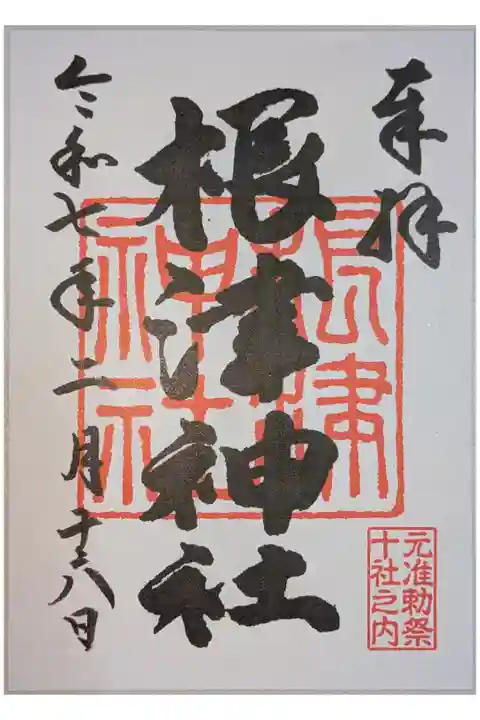 奉拝
根津神社
令和七年二月十八日
根津
神社
元准勅祭
十社之内